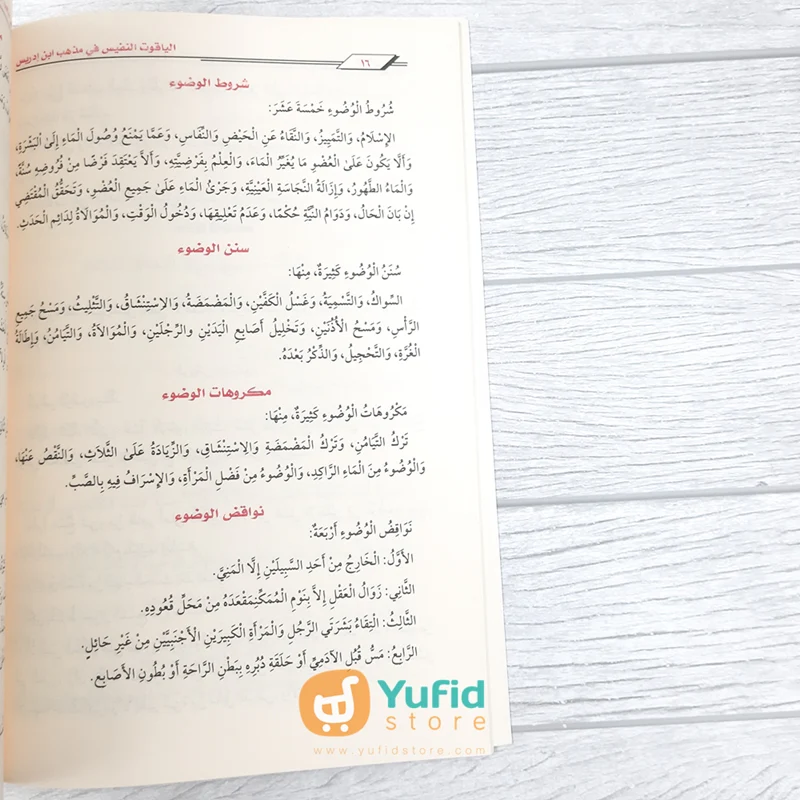 الياقوت النفيس في مذهب ابن إدريس
١٦
شروط الوضوء
شُرُوطُ الْوُضُوءِ خَمْسَةَ عَشَرَ:
الإِسْلَامُ، وَالتَّمْيِيزُ، وَالنَّقَاءُ عَنِ الْحَيْضِ وَالنِّفَاسِ، وَعَمَّا يَمْنَعُ وُصُولَ الْمَاءِ إِلَىٰ الْبَشَرَةِ،
وَأَلَّا يَكُونَ عَلَىٰ الْعُضْوِ مَا يُغَيِّرُ الْمَاءَ، وَالْعِلْمُ بِفَرْضِيَّتِهِ، وَأَلاَّ يَعْتَقِدَ فَرْضًا مِنْ فُرُوضِهِ سُنَّةً،
وَالْمَاءُ الطَّهُورُ، وَإِزَالَةُ النَّجَاسَةِ الْعَيْنِيَّةِ، وَجَرْيُ الْمَاءِ عَلَىٰ جَمِيعِ الْعُضْوِ، وَتَحَقُّقُ الْمُقْتَضِي
إِنْ بَانَ الْحَالُ، وَدَوَامُ النِّيَّةِ حُكْمًا، وَعَدَمُ تَعْلِيقِهَا، وَدُخُولُ الْوَقْتِ، وَالْمُوَالَاةُ لِدَائِمِ الْحَدَثِ.
سنن الوضوء
سُنَنُ الْوُضُوءِ كَثِيرَةٌ، مِنْهَا:
السِّوَاكُ، وَالتَّسْمِيَةُ، وَغَسْلُ الْكَفَّيْنِ، وَالْمَضْمَضَةُ، وَالِاسْتِنْشَاقُ، وَالتَّثْلِيثُ، وَمَسْحُ جَمِيعِ
الرَّأْسِ، وَمَسْحُ الْأُذُنَيْنِ، وَتَخْلِيلُ أَصَابِعِ الْيَدَيْنِ والرِّجْلَيْنِ، وَالْمُوَالَاةُ، وَالتَّيَامُنُ، وَإِطَالَةُ
الْغُرَّةِ، وَالتَّحْجِيلُ، وَالذِّكْرُ بَعْدَهُ.
مكروهات الوضوء
مَكْرُوهَاتُ الْوُضُوءِ كَثِيرَةٌ، مِنْهَا:
تَرْكُ التَّيَامُنِ، وَتَرْكُ الْمَضْمَضَةِ وَالِاسْتِنْشَاقِ، وَالزِّيَادَةُ عَلَىٰ الثَّلَاثِ، وَالنَّقْصُ عَنْهَا،
وَالْوُضُوءُ مِنَ الْمَاءِ الرَّاكِدِ، وَالْوُضُوءُ مِنْ فَضْلِ الْمَرْأَةِ، وَالْإِسْرَافُ فِيهِ بِالصَّبِّ.
نواقض الوضوء
نَوَاقِضُ الْوُضُوءِ أَرْبَعَةٌ:
الأَوَّلُ: الْخَارِجُ مِنْ أَحَدِ السَّبِيلَيْنِ إِلَّا الْمَنِيَّ.
الثَّانِي: زَوَالُ الْعَقْلِ إِلاَّ بِنَوْمِ الْمُمَكِّنِمَقْعَدَهُ مِنْ مَحَلِّ قُعُودِهِ.
الثَّالِثُ: الْتِقَاءُ بَشَرَتَيِ الرَّجُلِ وَالْمَرْأَةِ الْكَبِيرَيْنِ الْأَجْنَبِيَّيْنِ مِنْ غَيْرِ حَائِلٍ.
الرَّابِعُ: مَسُّ قُبُلِ الآدَمِيِّ أَوْ حَلَقَةِ دُبُرِهِ بِبَطْنِ الرَّاحَةِ أَوْ بُطُونِ الأَصَابِعِ.
Yufid
store
www.yufidstore.com